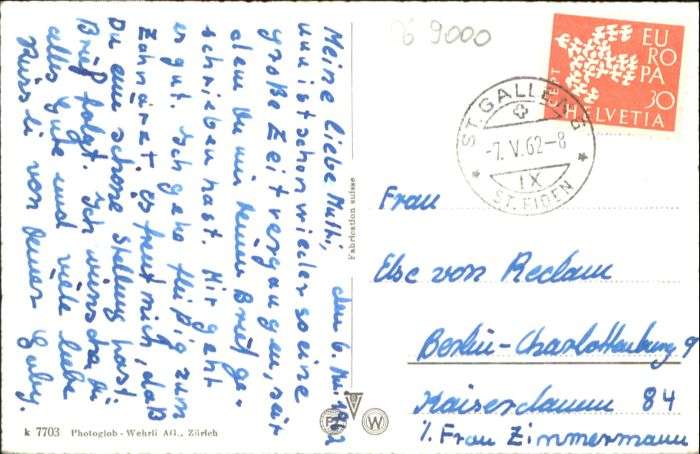 % 9000
EU
RO
PA
CEPT
30
HELVETIA
ST. GALLEN 8
-7. V. 62-8
IX
ST. FIDEN
den 6. Mai 1962
Meine liebe Mutti,
nun ist schon wieder so eine
große Zeit vergangen, seit
dem Du mir Deinen Brief ge-
schrieben hast. Mir geht
es gut. Ich gehe fleißig zum
Zahnarzt. Es freut mich, daß
Du eine schöne Stellung hast.
Brief folgt. Ich wünsche Di
alles Gute und viele liebe
Küssli von Deiner Gaby.
Fabrication suisse
Frau
Else von Reclam
Berlin-Charlottenburg 9
Kaiserdamm 84
%. Frau Zimmermann
k 7703 Photoglob-Wehrli AG., Zürich
W